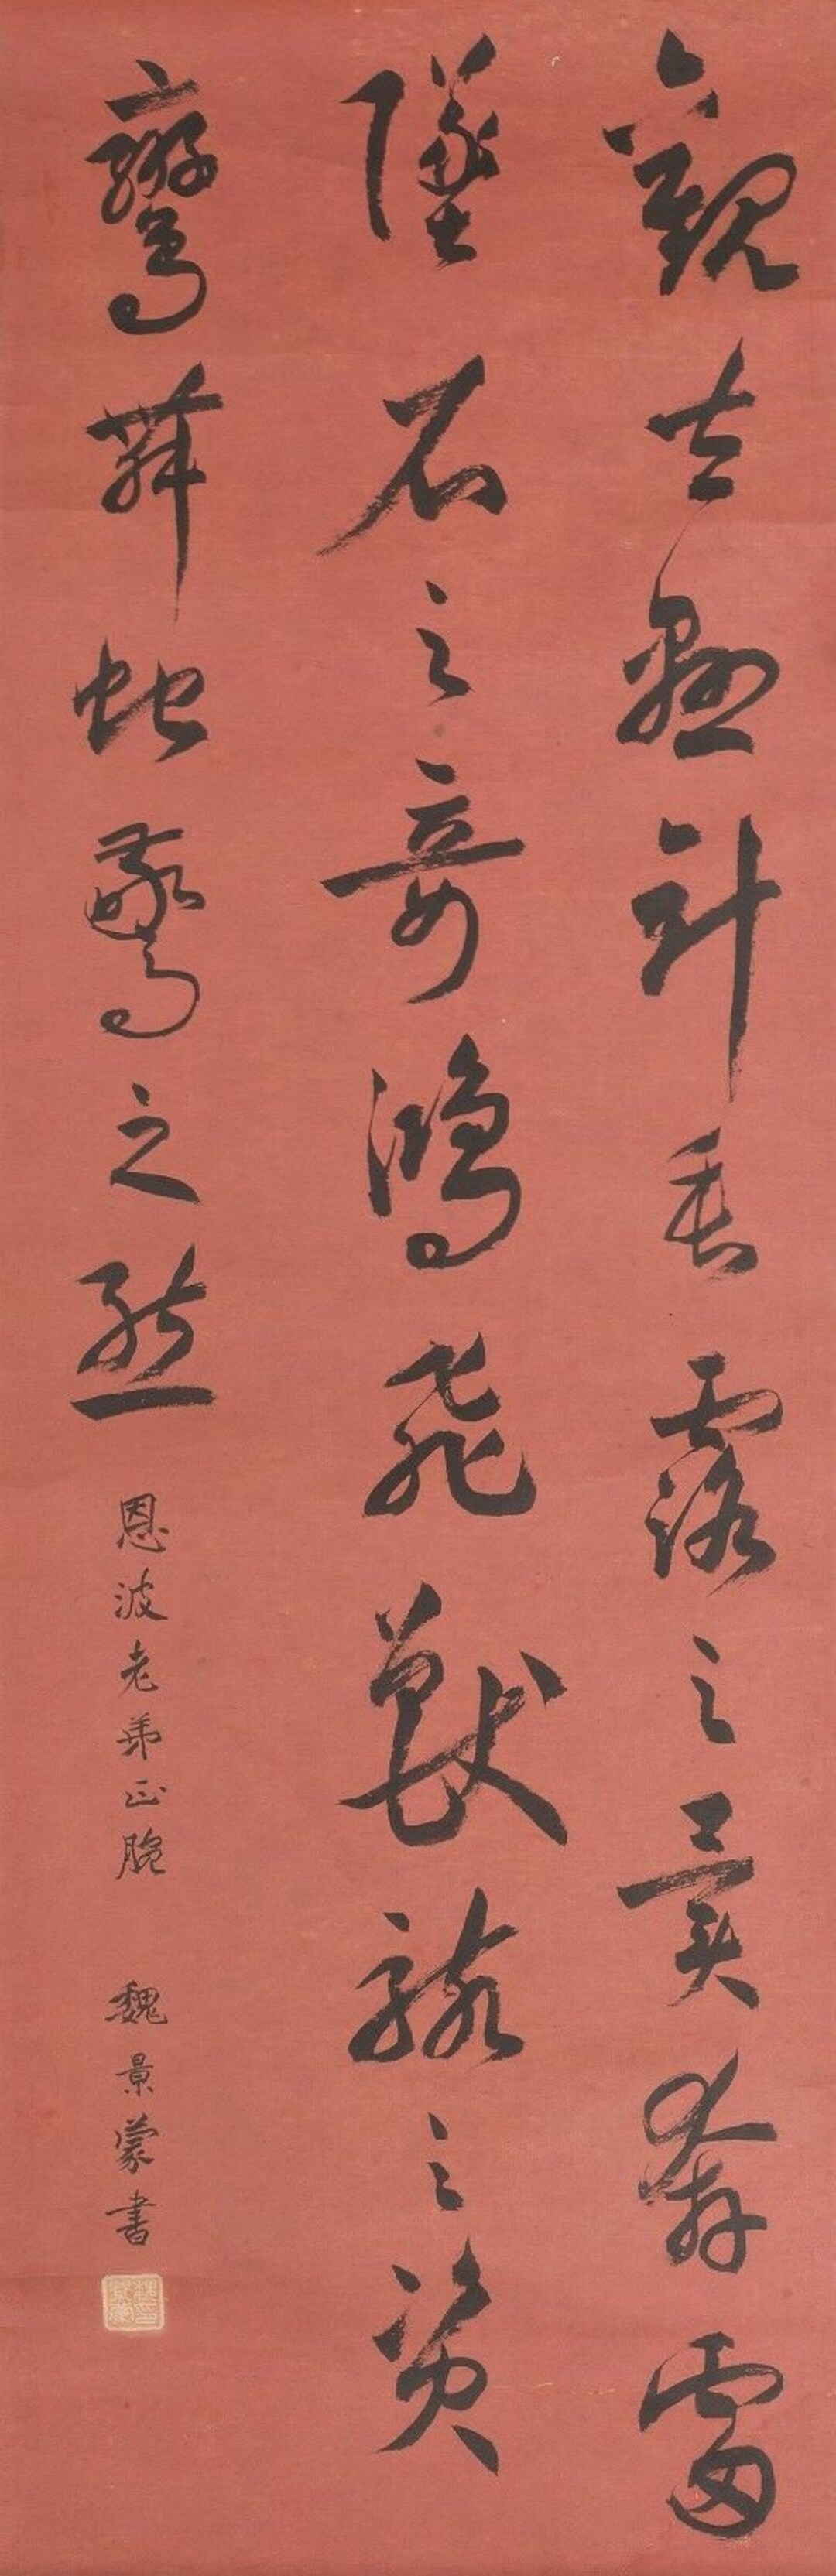 觀夫懸針垂露之異奔雷
墜石之奇鴻飛獸駭之資
鸞舞蛇驚之態
恩波老弟正腕
魏景蒙書